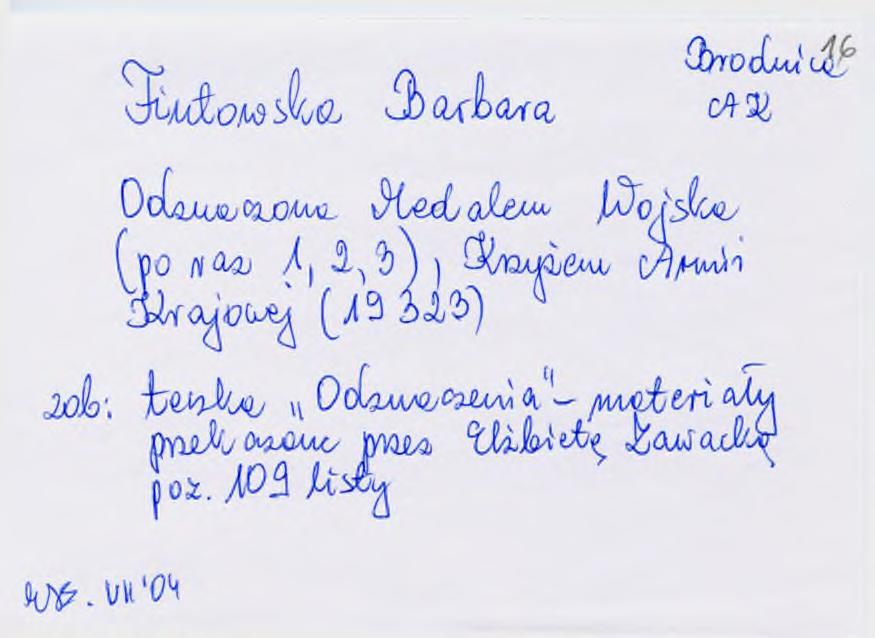 16
Brodnica
AK
Fintowska Barbara
Odznaczona Medalem Wojska
(po raz 1, 2, 3), Krzyżem Armii
Krajowej (19323)
zob: teczka „Odznaczenia" – materiały
przekazane przez Elżbietę Zawacką
poz. 109 listy
VII '04